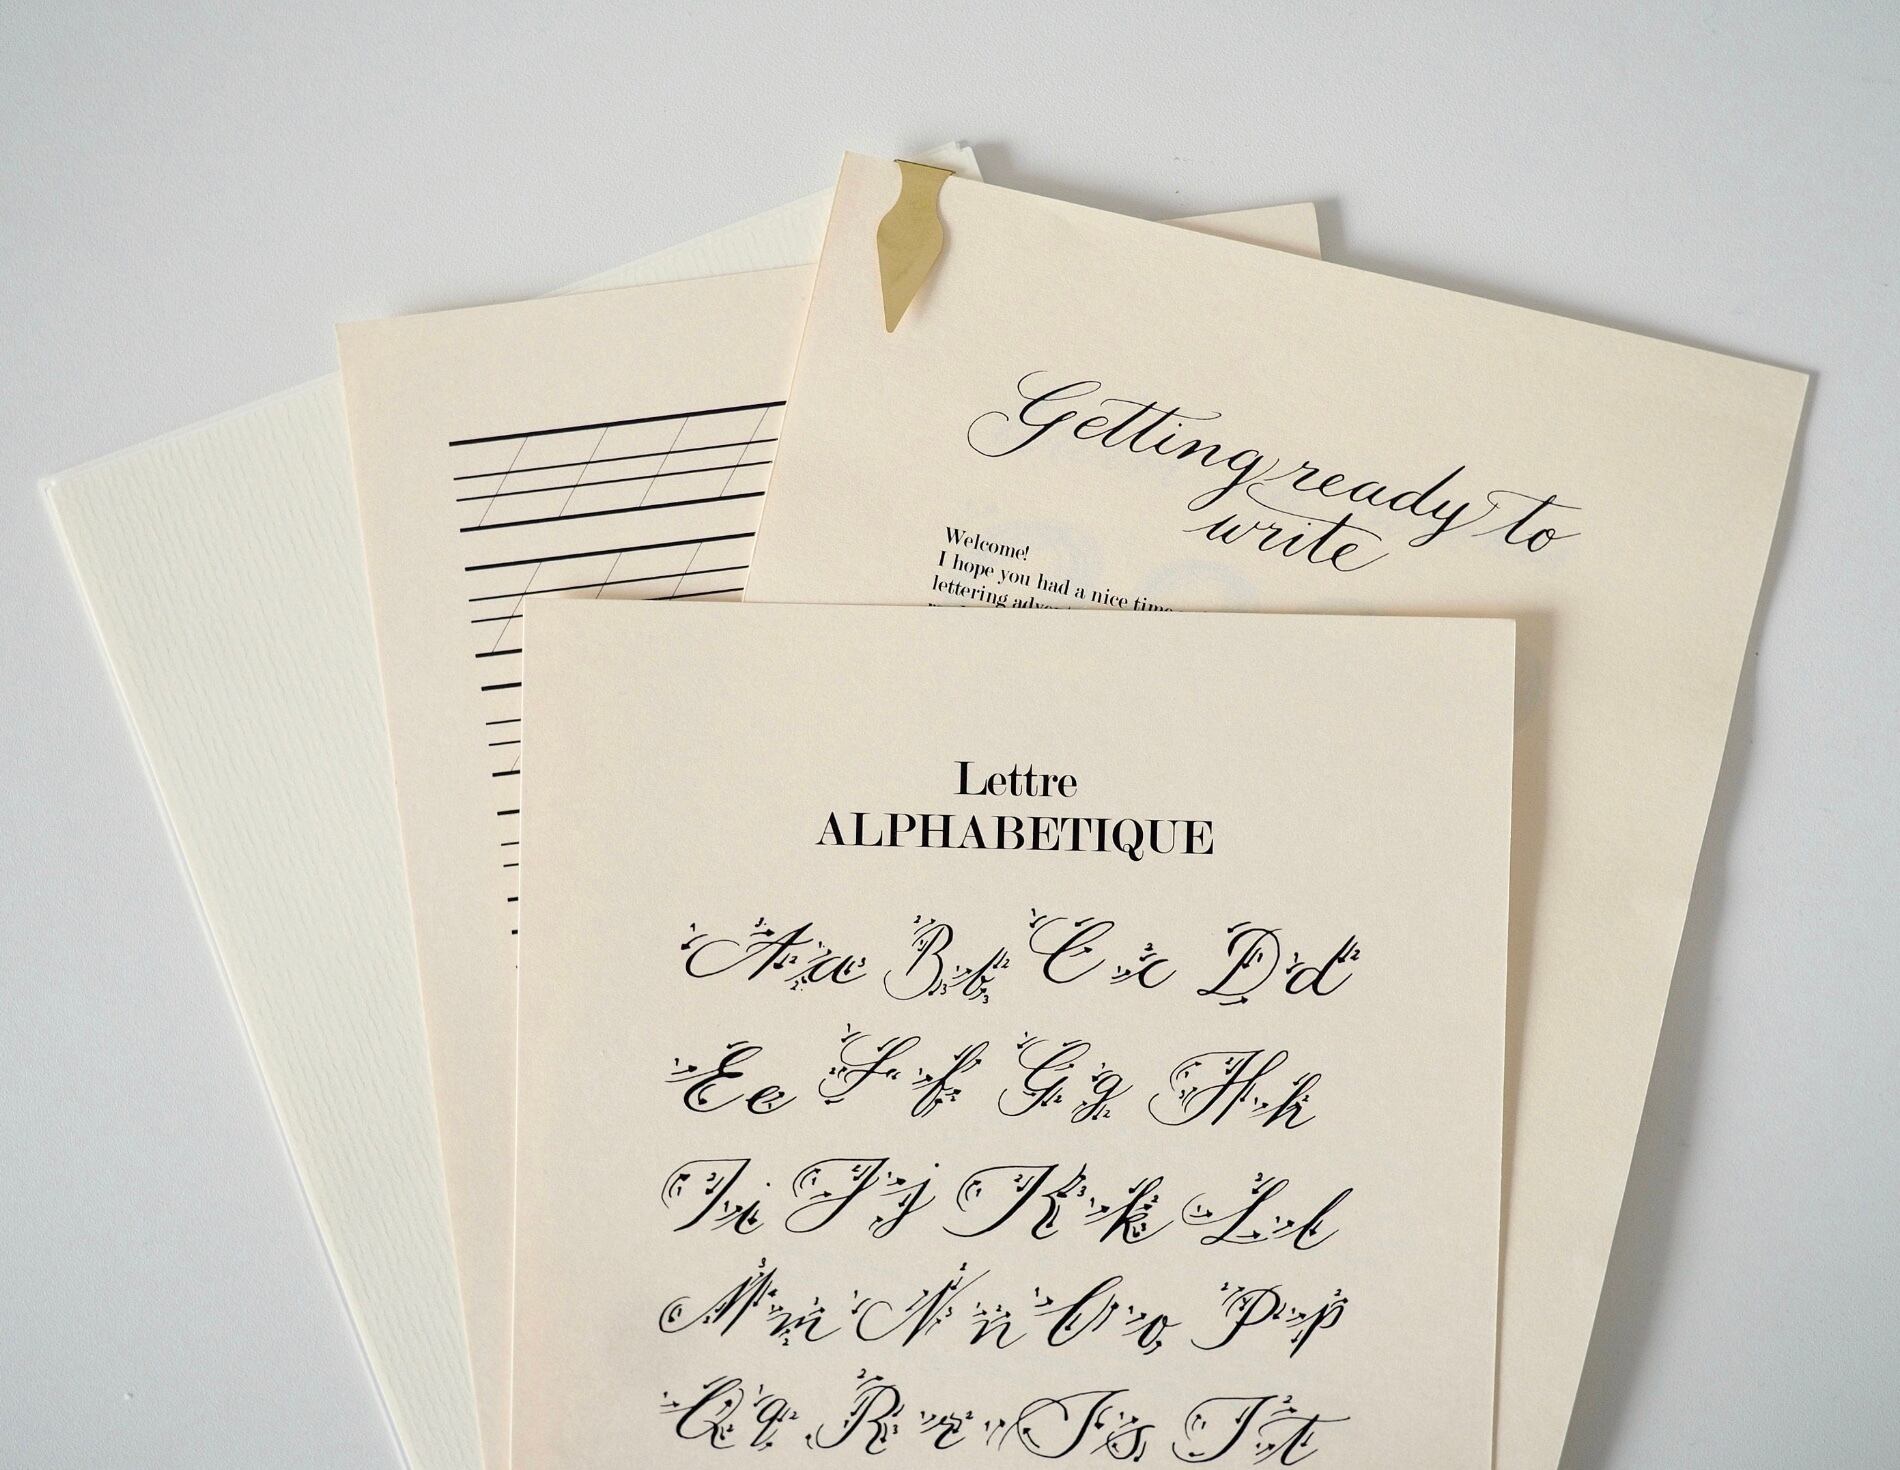 Getting ready to
write
Welcome!
I hope you had a nice time
lettering
Lettre
ALPHABETIQUE
Aa Bb Cc Dd
Ee Ff Gg Hh
Ii Jj Kk Ll
Mm Nn Oo Pp
Qq Rr Ss Tt